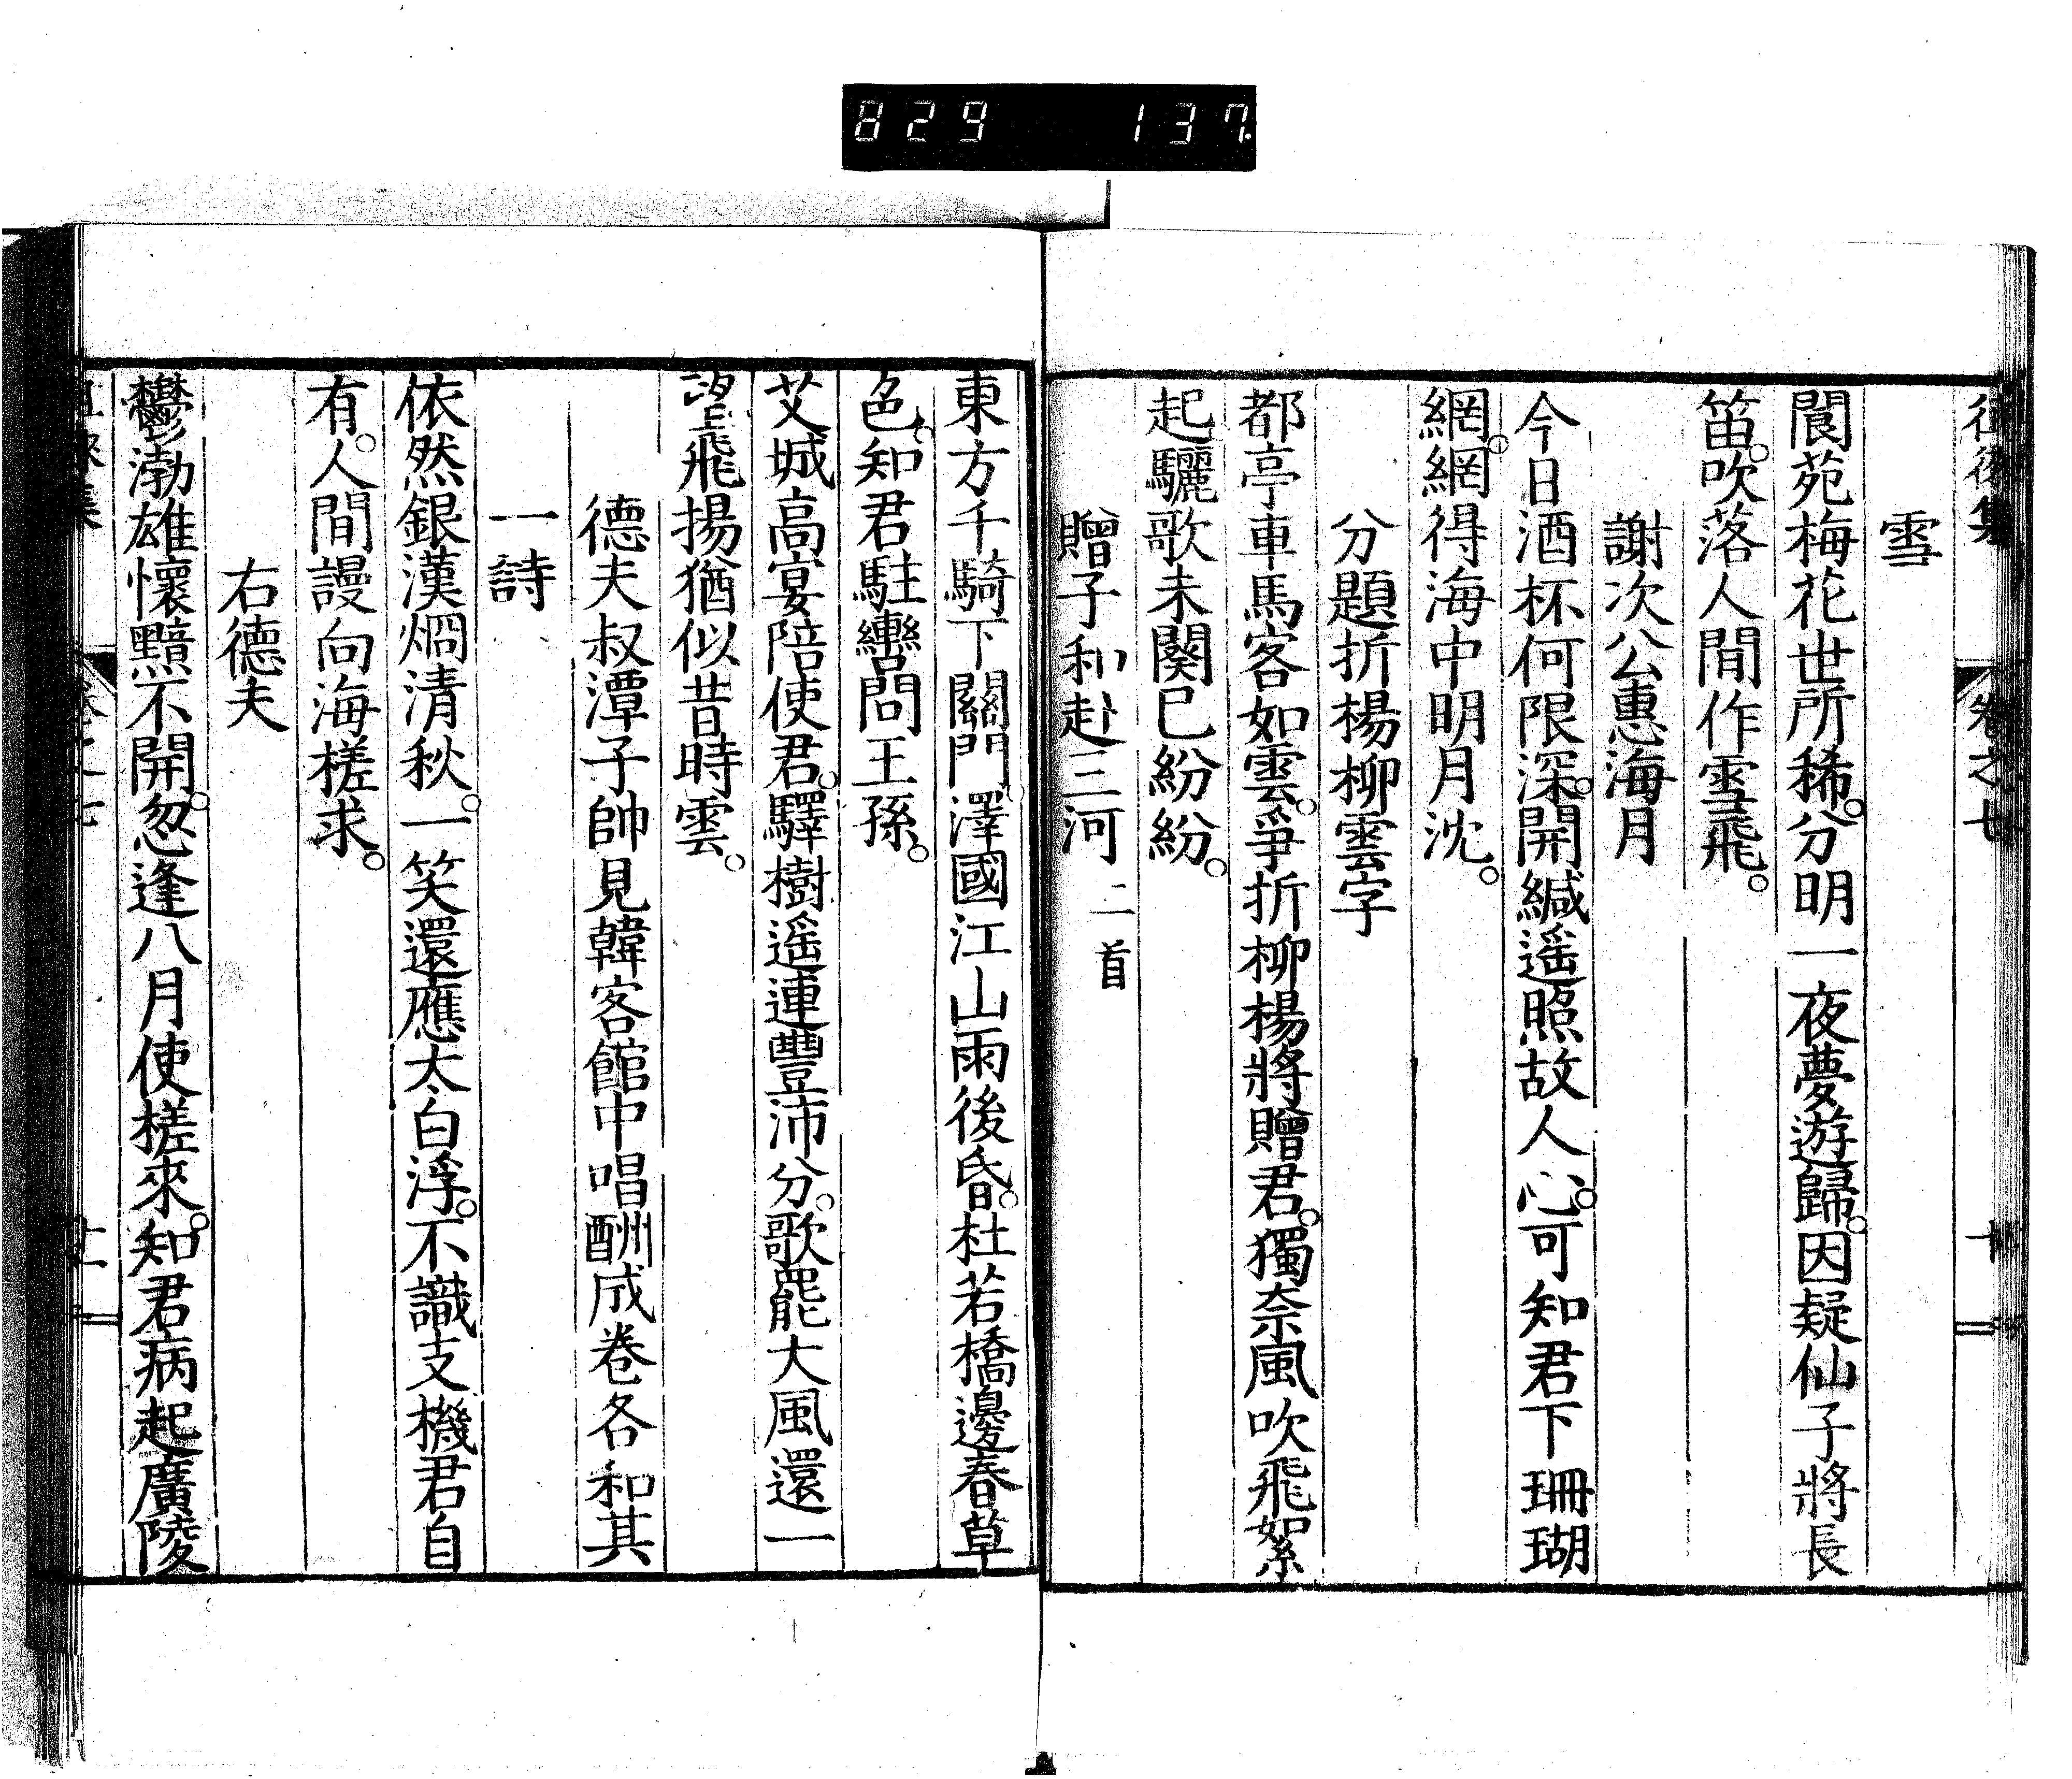 829 137.
卷之七 十
雪
閬苑梅花世所稀。分明一夜夢遊歸。因疑仙子將長
笛。吹落人間作雪飛。
謝次公惠海月
今日酒杯何限深。開緘遥照故人心。可知君下珊瑚
網。網得海中明月沈。
分題折楊柳雲字
都亭車馬客如雲。爭折柳楊將贈君。獨奈風吹飛絮
起驪歌未闋已紛紛。
贈子和赴三河 二首
東方千騎下關門。澤國江山雨後昏。杜若橋邊春草
色。知君駐轡問王孫。
艾城高宴陪使君。驛樹遥連豐沛分。歌罷大風還一
望飛揚猶似昔時雲。
德夫叔潭子帥見韓客館中唱酬成卷各和其
一詩
依然銀漢烱清秋。一笑還應太白浮。不識支機君自
有。人間謾向海槎求。
右德夫
鬱渤雄懷黯不開。忽逢八月使槎來。知君病起廣陵